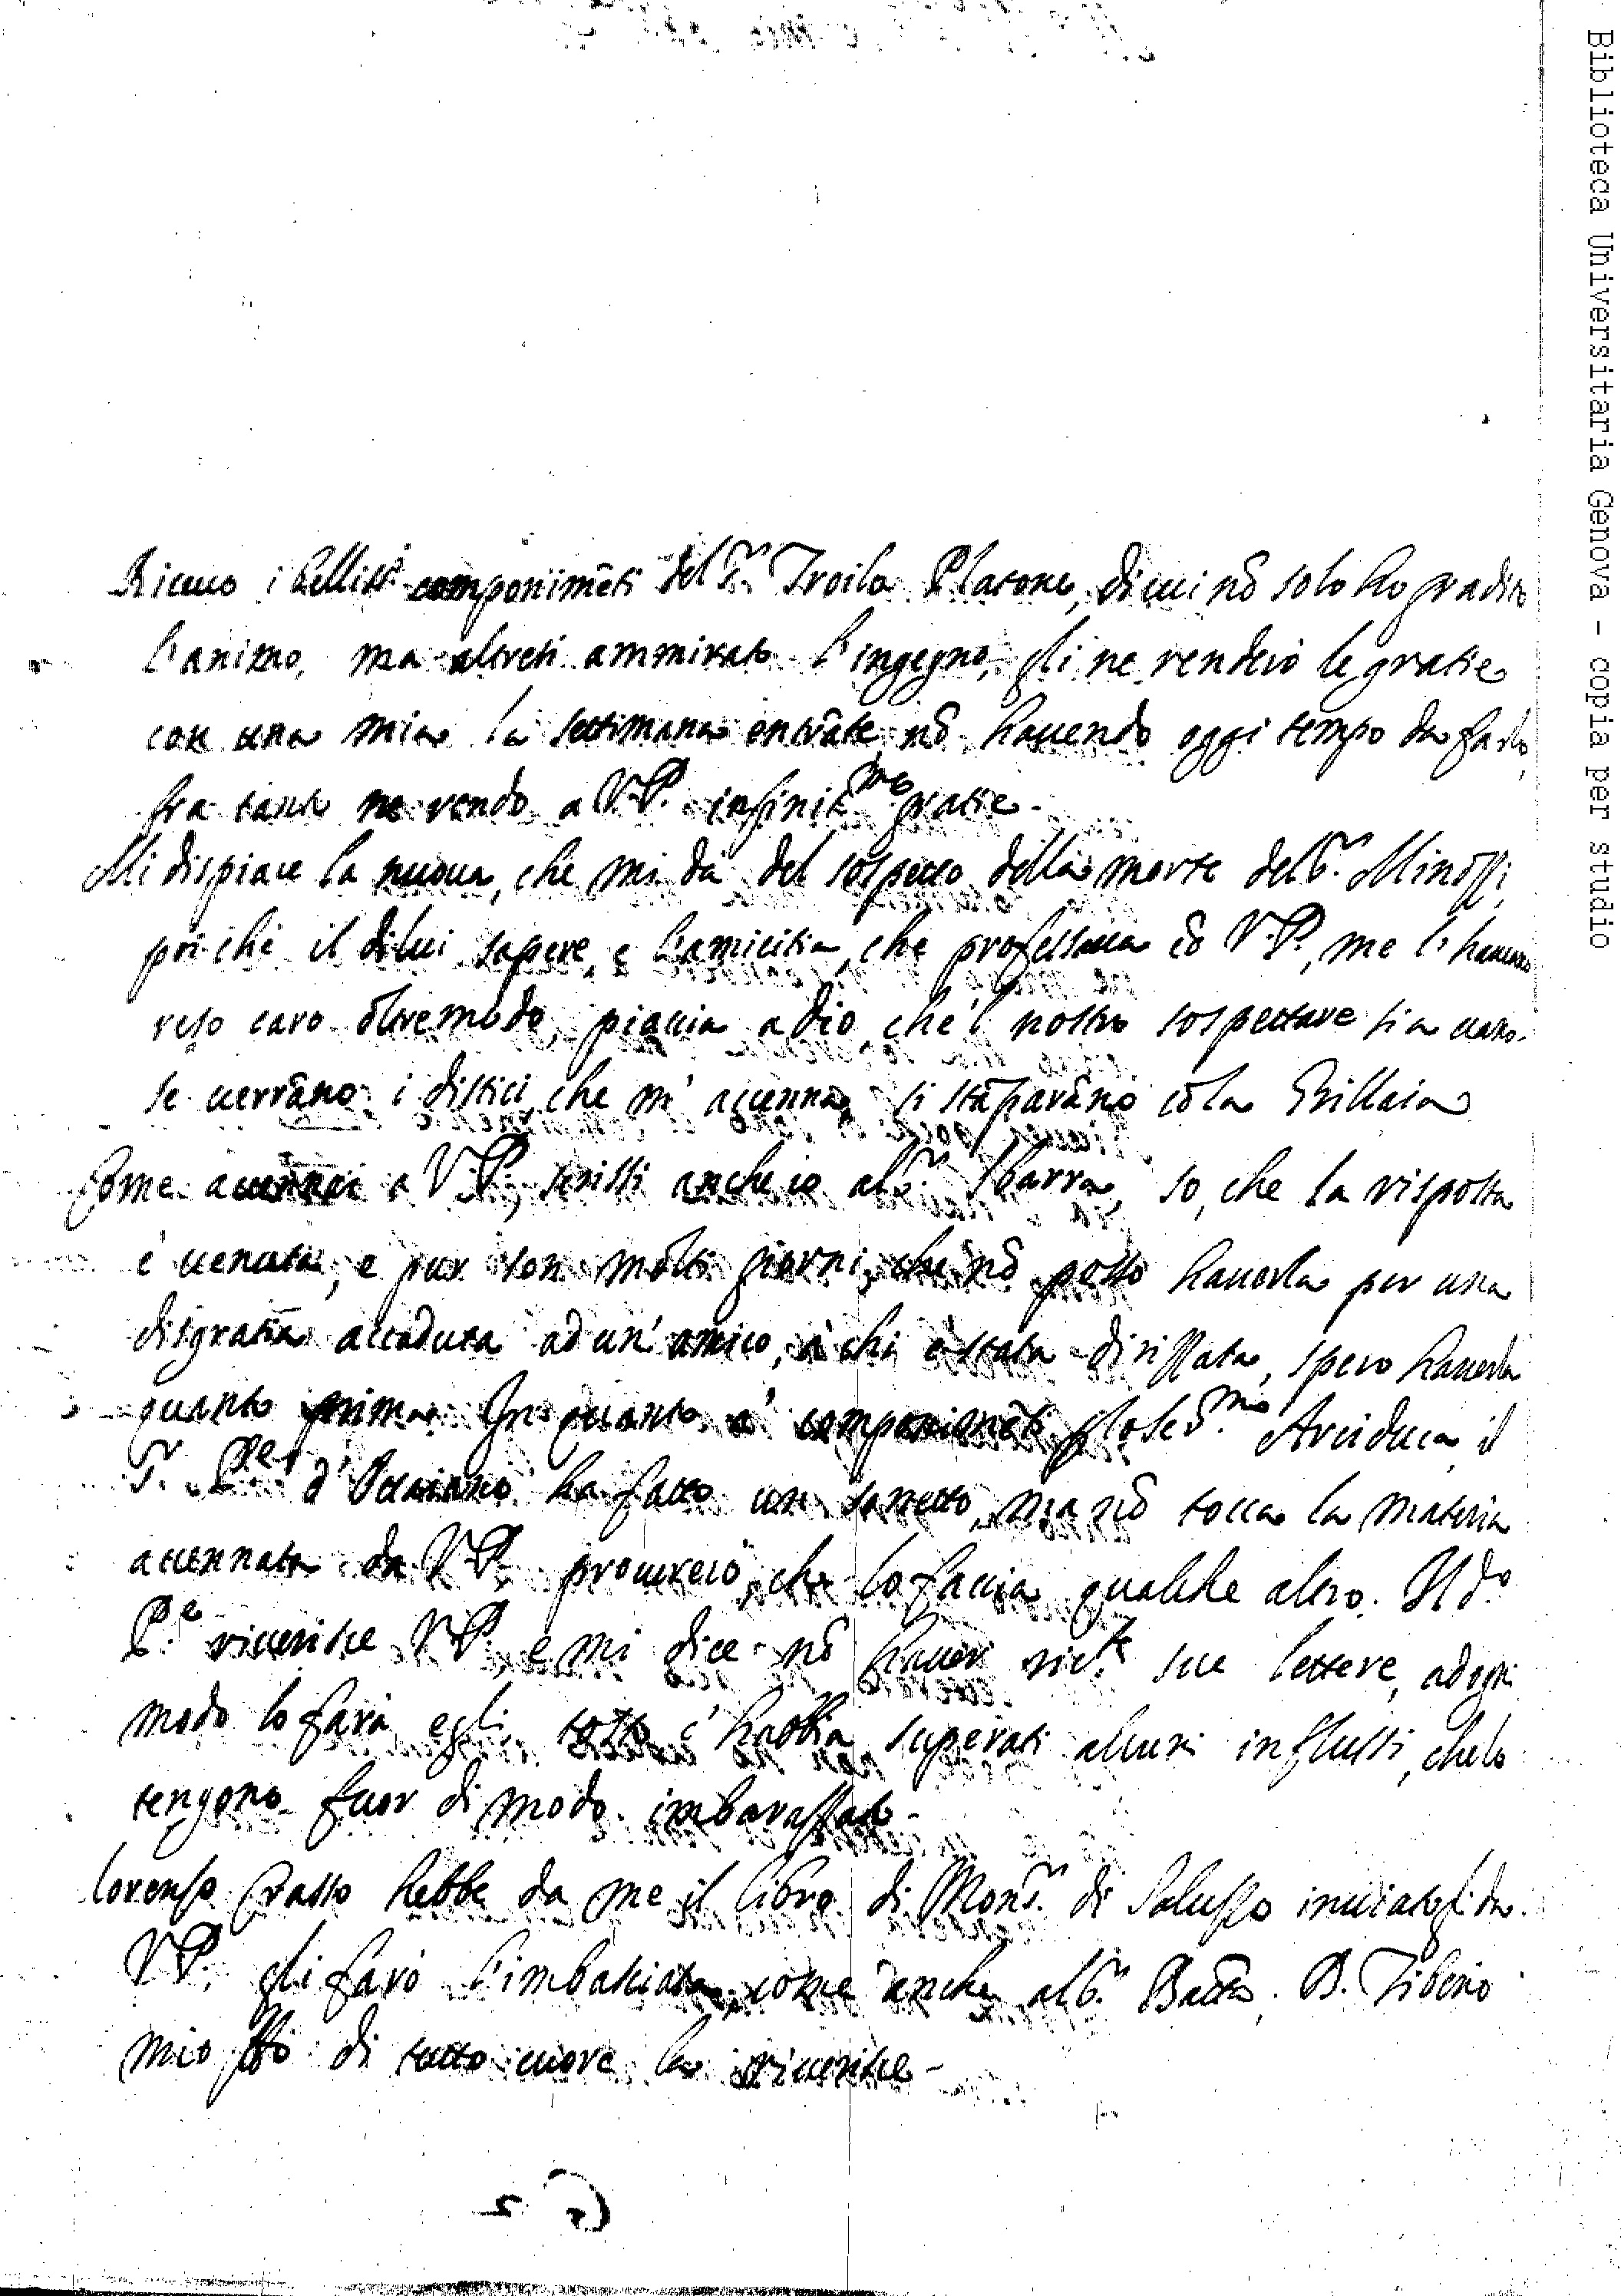 Riceuo i belliss.i componimẽti del S.r Troilo Platone, di cui nõ solo ho gradito
l'animo, ma altresi ammirato l'ingegno, gli ne renderò le gratie
con una mia la settimana entrãte, nõ hauendo oggi tempo da farlo,
fra tanto ne rendo a V.P. infinit.me gratie.
Mi dispiace la nuoua, che mi dà del sospetto della morte del S.r Minozzi,
poiche il di lui sapere, e l'amicitia, che professaua cõ V.P., me l'haueano
reso caro oltremodo, piaccia a Dio, che'l nostro sospettare sia uano.
se uerrãno i distici, che m'accenna, si stãparãno cõ la Grillaia
Come accennai a V.P., scrissi anche io al S.r Sbarra, so, che la risposta
è uenuta, e pur son molti giorni, che nõ posso hauerla per una
disgratia accaduta ad un'amico, à chi è stata dirizzata, spero hauerla
quanto prima. In quanto a' componimẽti p lo Ser.mo Arciduca, il
S.r P.pe d'Ottaiano ha fatto un sonetto, ma nõ tocca la materia
accennata da V.P., procurerò, che lo faccia qualche altro. Il d.o
P.e riuerisce V.P., e mi dice nõ hauer riceu.te sue lettere, ad ogni
modo lo farà egli, tosto c'habbia superati alcuni influssi, che lo
tengono fuor di modo imbarazzato.
Lorenzo Crasso hebbe da me il libro di Mons.r di Saluzzo inuiatogli da
V.P., gli farò l'imbasciata, come anche al S.r Batta. B. Tiberio
mio fr̃o di tutto cuore la riuerisce.
Biblioteca Universitaria Genova - copia per studio